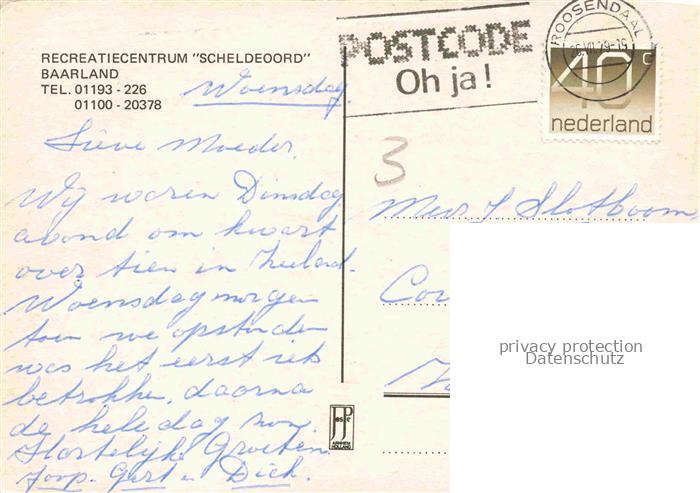 RECREATIECENTRUM "SCHELDEOORD"
BAARLAND
TEL. 01193 - 226
01100 - 20378
Woensdag.
Lieve Moeder.
Wij waren Dinsdag
avond om kwart
over tien in Zeeland.
Woensdagmorgen
toen we opstonden
was het eerst iets
betrokken, daarna
de hele dag zon.
Hartelijke Groeten
Joop. Gert en Dick.
POSTCODE
Oh ja!
ROOSENDAAL
40 c
nederland
3
Mevr J Slotboom
privacy protection
Datenschutz
JosPé
ARNHEM
HOLLAND